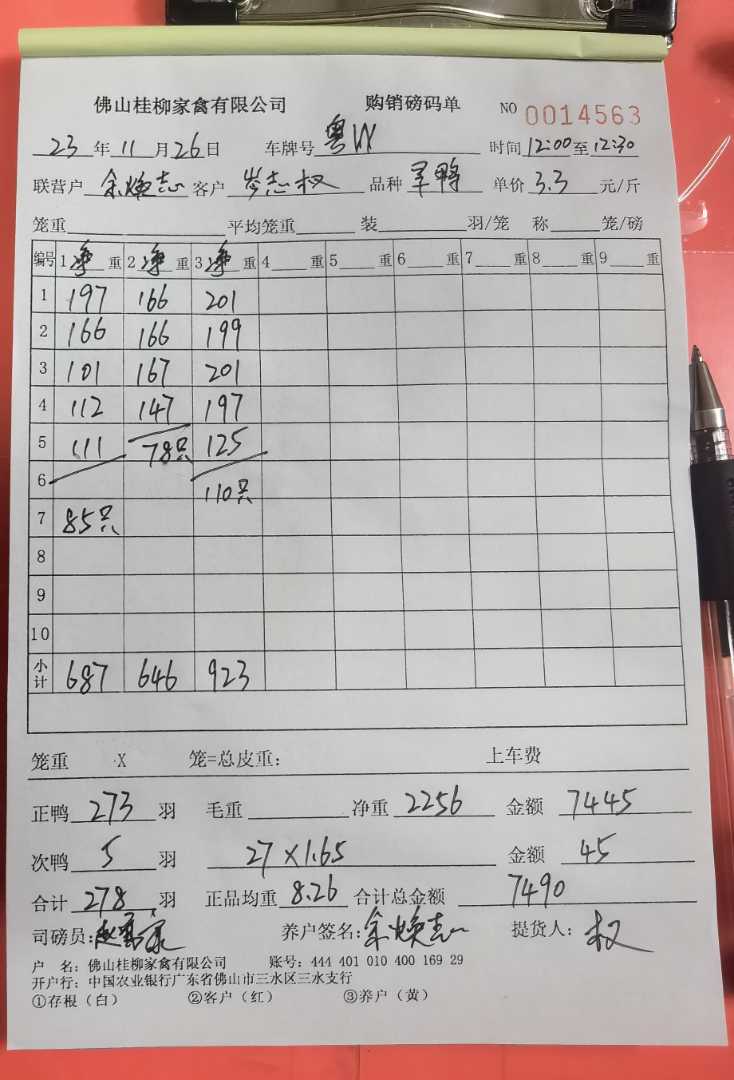 佛山桂柳家禽有限公司 购销磅码单 NO 0014563
23 年 11 月 26 日 车牌号 粤W 时间 12:00 至 12:30
联营户 余焕志 客户 岑志权 品种 羊鸭 单价 3.3 元/斤
笼重 平均笼重 装 羽/笼 称 笼/磅
编号 1 净 重 2 净 重 3 净 重 4 重 5 重 6 重 7 重 8 重 9 重
1 197 166 201
2 166 166 199
3 101 167 201
4 112 147 197
5 111 78只 125
6 110只
7 85只
8
9
10
小计 687 646 923
笼重 X 笼=总皮重： 上车费
正鸭 273 羽 毛重 净重 2256 金额 7445
次鸭 5 羽 27×1.65 金额 45
合计 278 羽 正品均重 8.26 合计总金额 7490
司磅员： 养户签名：余焕志 提货人：权
户 名：佛山桂柳家禽有限公司 账号：444 401 010 400 169 29
开户行：中国农业银行广东省佛山市三水区三水支行
①存根（白） ②客户（红） ③养户（黄）